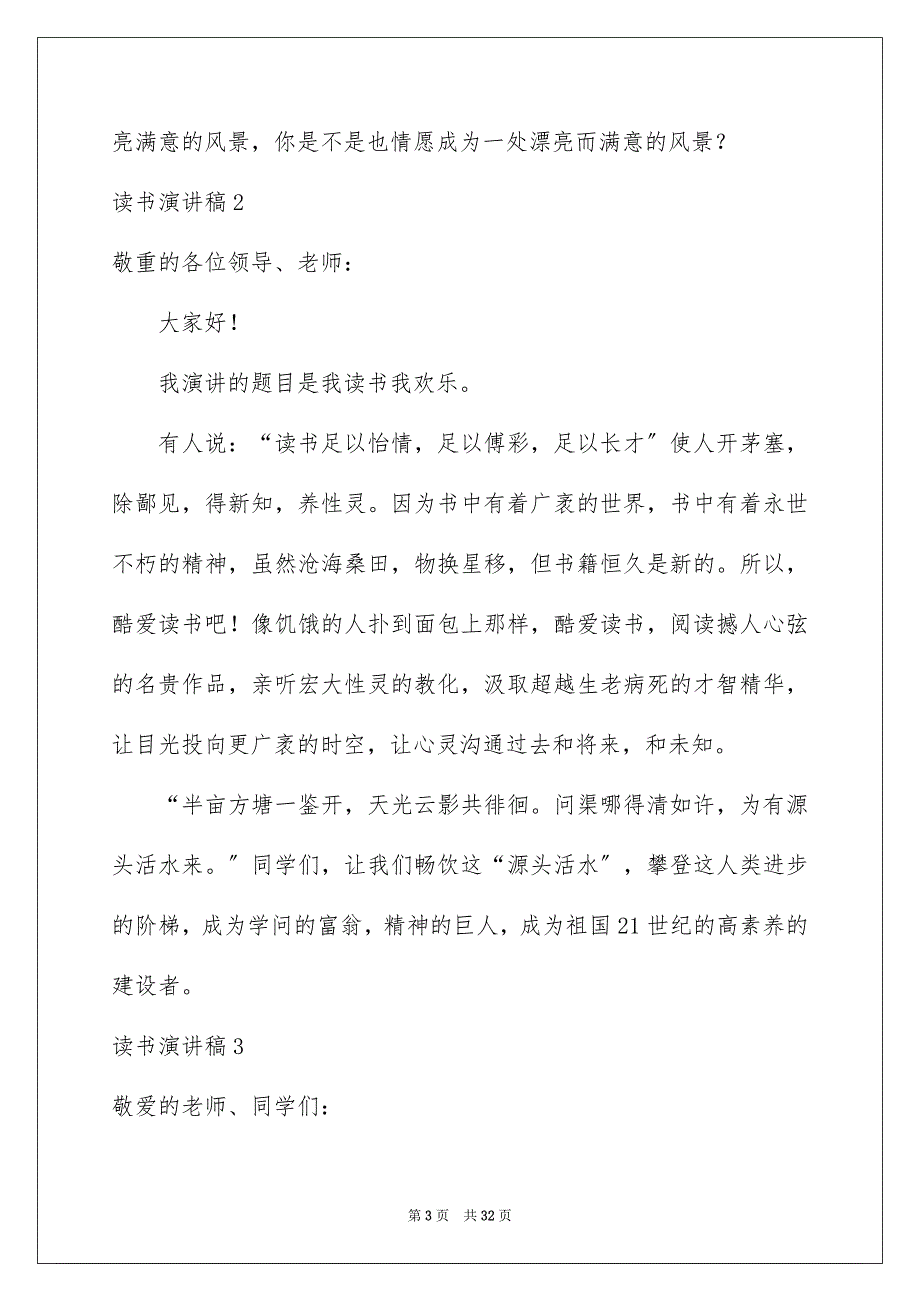 亮满意的风景，你是不是也情愿成为一处漂亮而满意的风景？
读书演讲稿 2
敬重的各位领导、老师：
大家好！
我演讲的题目是我读书我欢乐。
有人说：“读书足以怡情，足以傅彩，足以长才〞使人开茅塞，
除鄙见，得新知，养性灵。因为书中有着广袤的世界，书中有着永世
不朽的精神，虽然沧海桑田，物换星移，但书籍恒久是新的。所以，
酷爱读书吧！像饥饿的人扑到面包上那样，酷爱读书，阅读撼人心弦
的名贵作品，亲听宏大性灵的教化，汲取超越生老病死的才智精华，
让目光投向更广袤的时空，让心灵沟通过去和将来，和未知。
“半亩方塘一鉴开，天光云影共徘徊。问渠哪得清如许，为有源
头活水来。〞同学们，让我们畅饮这“源头活水〞，攀登这人类进步
的阶梯，成为学问的富翁，精神的巨人，成为祖国 21 世纪的高素养的
建设者。
读书演讲稿 3
敬爱的老师、同学们：
第 3 页 共 32 页